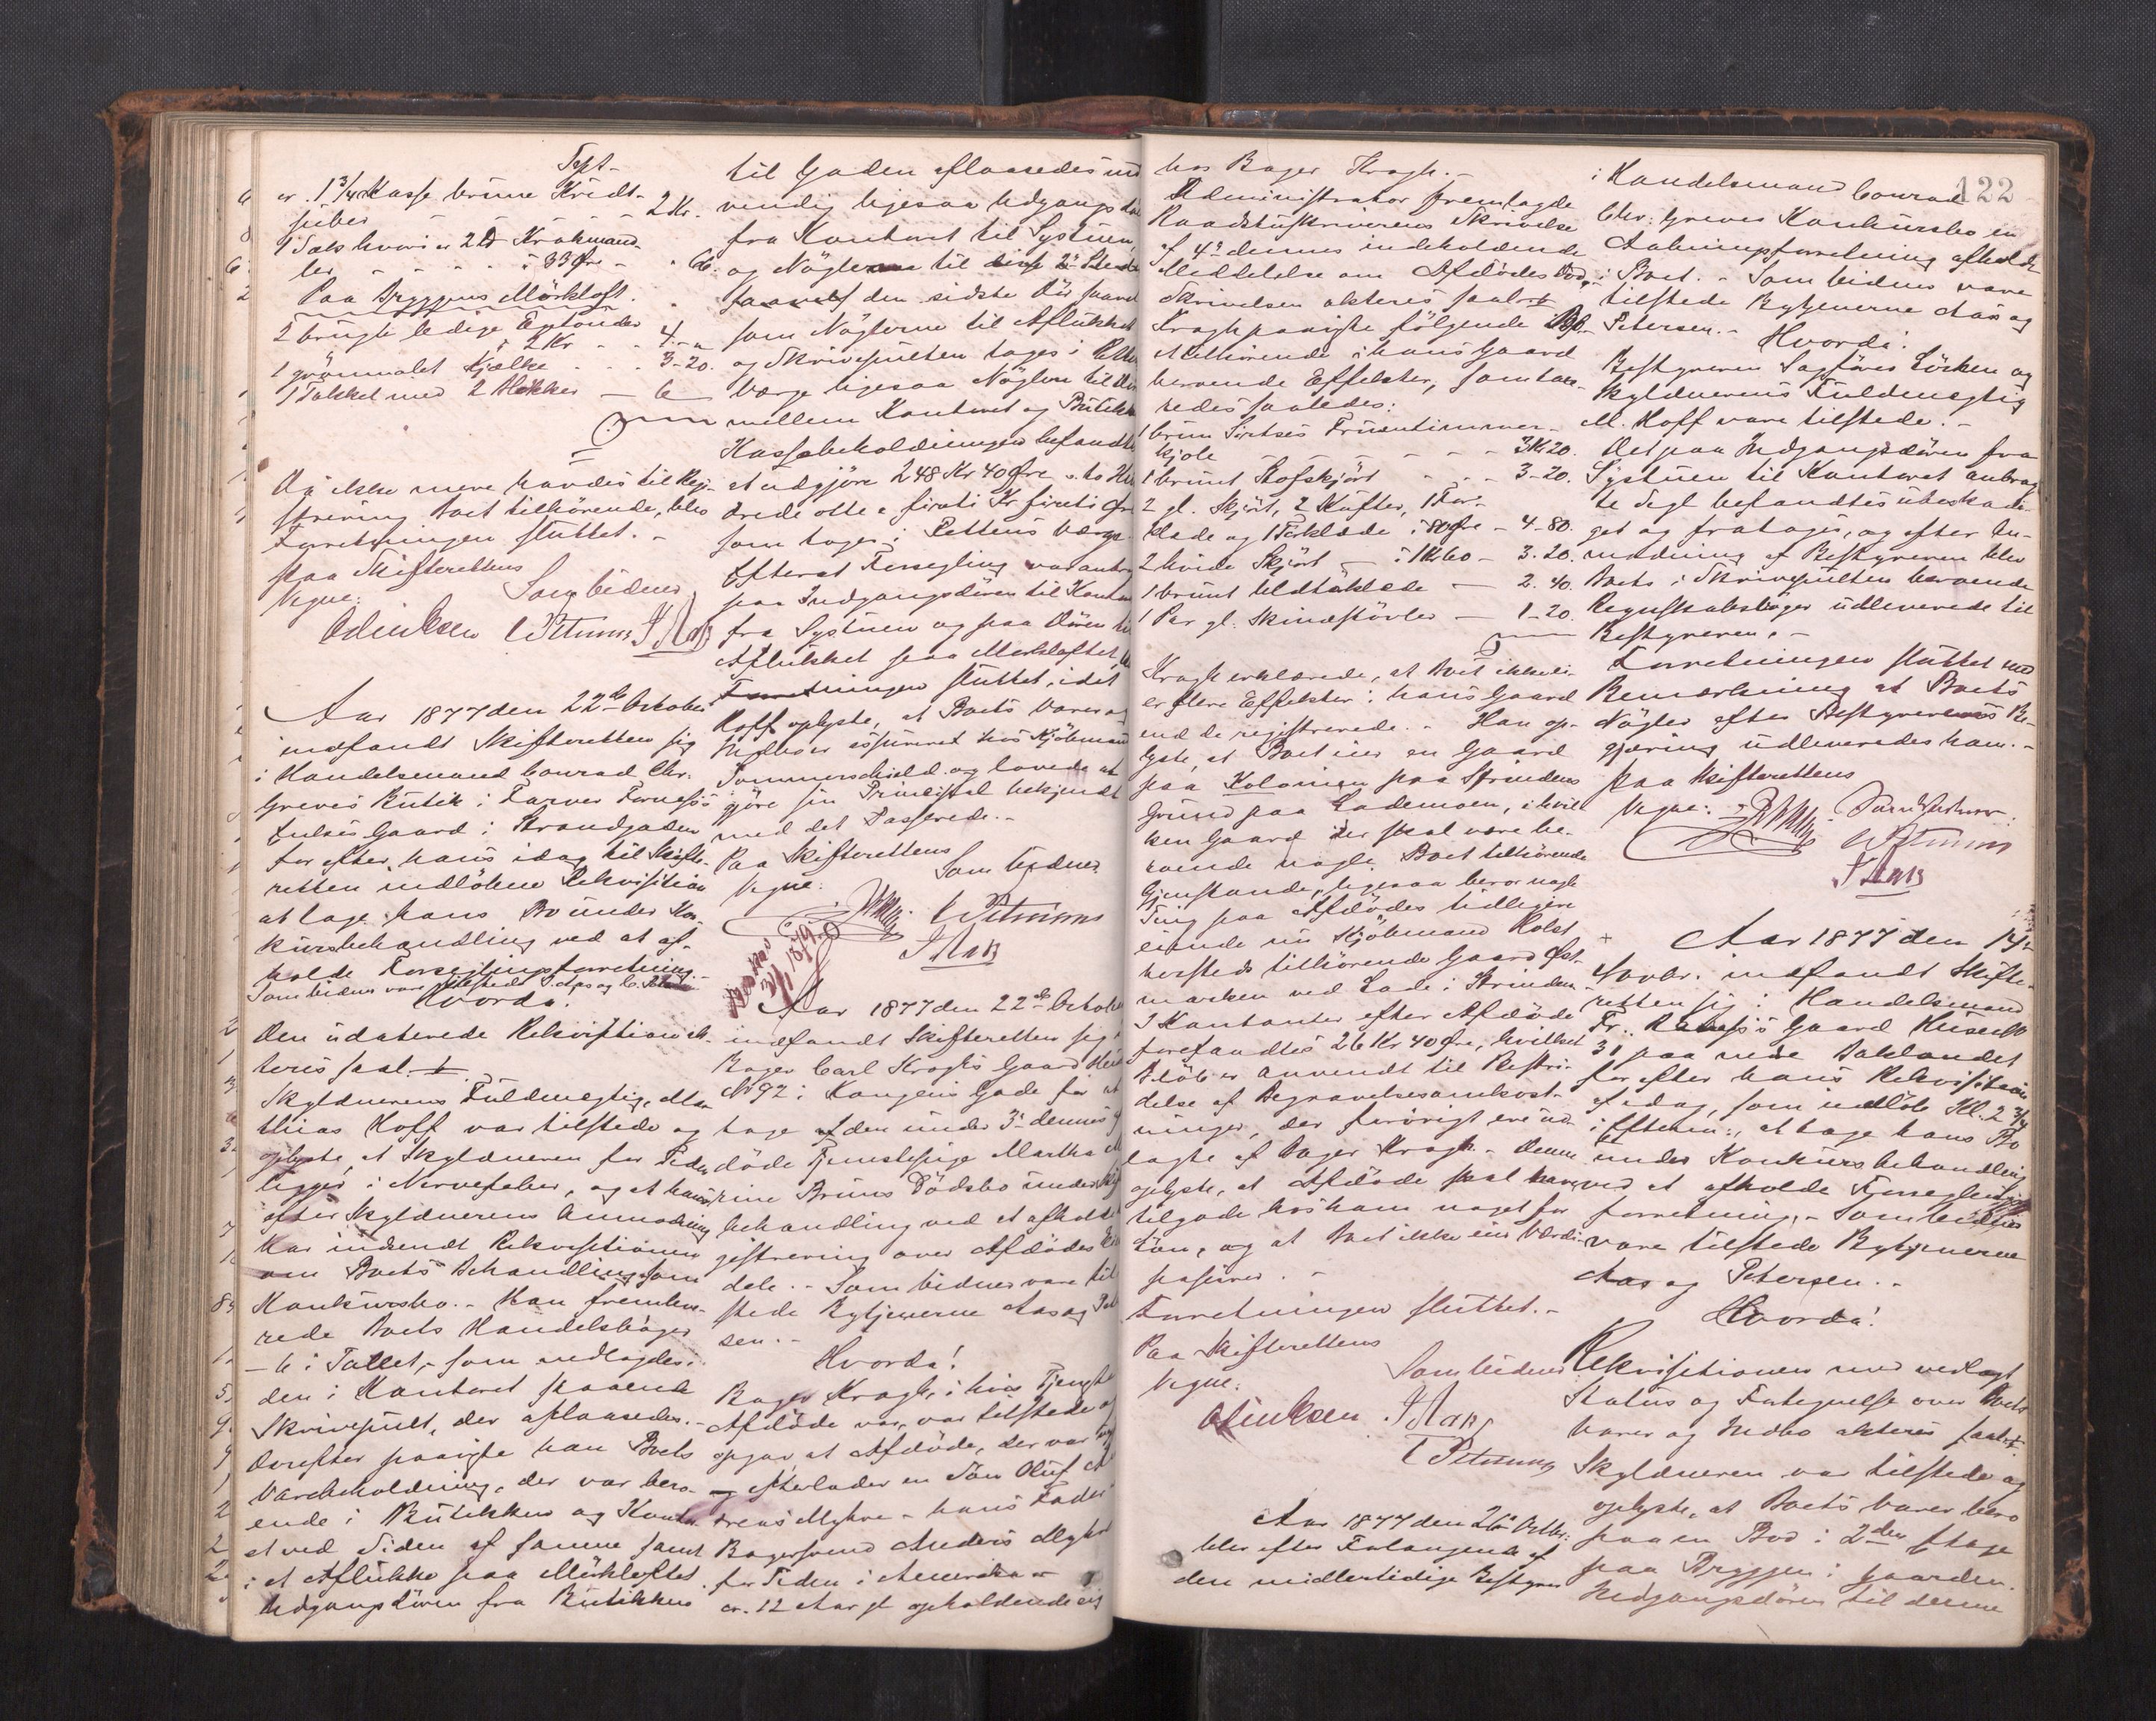 Tspt.
cr. 1 3/4 Kasse brune Kridt-
piber - - - - 2 Kr.
1 Sæk hvori cr 2 ℔ Krakmand-
ler - - - - à 33 Øre - " 66.
Paa Bryggens Mørkloft.
2 brugte ledige Tønder
à 2 Kr - - 4 - "
1 grønmalet Kjælke - - - 3-20.
1 Takkel med 2 Blokker — 6 —
Da ikke mere havdes til Regi-
strering Boet tilhørende, blev
Forretningen sluttet. -
Paa Skifterettens
Vegne: Som Vidner
C Petersen J Aas
Aar 1877 den 22de October
indfandt Skifteretten sig
i Handelsmand Conrad Chr.
Greves Butik i Farver
Enkes Gaard i Strandgaden
for efter hans idag til Skifte-
retten indløbne Rekvisition
at tage hans Bo under Kon-
kursbehandling ved at af-
holde Forseglingsforretning. -
Som Vidner vare tilstede J. Aas og C. Petersen
Hvorda:
Den udaterede Rekvisition ak-
teres saal.
Skyldnerens Fuldmægtig, Mat-
thias Hoff var tilstede og
oplyste, at Skyldneren for Tiden
ligger i Nervefeber, og at han
efter Skyldnerens Anmodning
har indsendt Rekvisitionen
om Boets Behandling som
Konkursbo. - Han fremleve-
rede Boets Handelsbøger
- 6 i Tallet, - som nedlagdes i
den i Kontoret staaende
Skrivepult, der aflaasedes. -
Derefter paaviste han Boets
Varebeholdning, der var bero-
ende i Butikken og Kontor
et ved Siden af samme samt
i et Aflukke paa Mørkloftet.
Udgangsdøren fra Butikken
til Gaden aflaasedes ind
vendig ligesaa Udgangsdør
fra Kontoret til Systuen,
og Nøglerne til disse 2de Steder
foruden den sidste Dør saavel
som Nøglerne til Aflukket
og Skrivepulten tages i Rettens
Værge ligesaa Nøglen til Dør
mellem Kontoret og Butikken
Kassebeholdningen befandtes
at udgjøre 248 Kr 40 Øre - to Hun
drede otte & firti Kr firti Øre
som tages i Rettens Værge.
Efterat Forsegling var anbragt
paa Indgangsdøren til Kontoret
fra Systuen og paa Døren til
Aflukket paa Mørkloftet, blev
Forretningen sluttet, idet
Hoff oplyste, at Boets Varer og
Indbo er assureret hos Kjøbmand
Sommerschield og lovede at
gjøre sin Principal bekjendt
med det Passerede. -
Paa Skifterettens
Vegne: Som Vidner
C Petersen
J Aas
3/1 1879.
Aar 1877 den 22de October
indfandt Skifteretten sig i
Bager Carl Kroghs Gaard
No 92 i Kongens Gade for at
tage af den under 3de dennes af
døde Tjenestepige Martha
rine Bruns Dødsbo under Skif
behandling ved at afholde
gistrering over Afdødes
dele. - Som Vidner vare til
stede Bytjenerne Aas og Pet
sen. -
Hvorda!
Bager Krogh, i hvis Tjeneste
Afdøde var, var tilstede og
opgav, at Afdøde, der var
og efterlader en Søn Oluf
dreas Myhre - hans Fader
Bagersvend Anders Myhre
for Tiden i Amerika -
cr. 12 Aar gl opholdende sig
122
hos Bager Krogh. -
Administrator fremlagde
Raadstuskriverens Skrivelse
af 4de dennes indeholdende
Meddelelse om Afdødes Død. -
Skrivelsen akteres saal.
Krogh paaviste følgende Bo-
et tilhørende i hans Gaard
beroende Effekter, som tax-
eredes saaledes:
1 brun Sirtses Fruentimmer-
kjole - - - - - 3 Kr 20.
1 brunt Stofskjørt - - - 3-20.
2 gl. Skjørt, 2 Kufter, 1 For-
klæde og 1 Tørklæde à 80 Øre - 4-80.
2 hvide Skjørt - à 1 Kr 60 - 3.20.
1 brunt Uldtørklæde — 2.40.
1 Par gl. Skindstøvler — 1-20.
Krogh erklærede, at Boet ikke ei-
er flere Effekter i hans Gaard
end de registrerede. - Han op-
lyste, at Boet eier en Gaard
paa Kolonien paa Strindens
Grund paa Lademoen, i hvil
ken Gaard der skal være be-
roende nogle Boet tilhørende
Gjenstande, ligesaa beror nogle
Ting paa Afdødes tidligere
eiende nu Kjøbmand Holst
tilhørende Gaard Øst-
marken ved Lade i Strinden. -
I Kontanter efter Afdøde
forefandtes 26 Kr 40 Øre, hvilket
Beløb er anvendt til Bestri-
delse af Begravelsesomkost-
ninger, der forøvrigt ere ud-
lagte af Bager Krogh. - Denne
oplyste, at Afdøde skal have
tilgode hos ham noget for
Løn, og at Boet ikke eier Værdi-
papirer. -
Forretningen sluttet. -
Paa Skifterettens
Vegne: Som Vidner
J Aas
C Petersen
Aar 1877 den 26de Octbr:
blev efter Forlangende af
den midlertidige Bestyrer
i Handelsmand Conrad
Chr. Greves Konkursbo en
Aabningsforretning afholdt
i Boet. - Som Vidner vare
tilstede Bytjenerne Aas og
Petersen. -
Hvorda:
Bestyreren Sagfører Lörken og
Skyldnerens Fuldmægtig
M. Hoff vare tilstede. -
Det paa Indgangsdøren fra
Systuen til Kontoret anbrag
te Segl befandtes ubeskadi-
get og fratoges, og efter An-
modning af Bestyreren blev
Boets i Skrivepulten beroende
Regnskabsbøger udleverede til
Bestyreren. -
Forretningen sluttet med
Bemærkning at Boets
Nøgler efter Bestyrerens Be-
gjæring udleveredes ham. -
Paa Skifterettens
Vegne: Som Vidner:
C Petersen
J Aas
+ Aar 1877 den 14de
Novbr. indfandt Skifte-
retten sig i Handelsmand
Fr. Gaard Huse No
31 paa nedre Baklandet
for efter hans Rekvisition
af idag, som indløb Kl. 2 3/4
i Efterm:, at tage hans Bo
under Konkursbehandling
ved at afholde Forseglings-
forretning. - Som Vidner
vare tilstede Bytjenerne
Aas og Petersen. -
Hvorda!
Rekvisitionen med vedlagt
Status og Fortegnelse over Boets
Varer og Indbo akteres saal.
Skyldneren var tilstede og
oplyste, at Boets Varer bero
paa en Bod i 2den Etage
paa Bryggen i Gaarden.
Indgangsdøren til denne